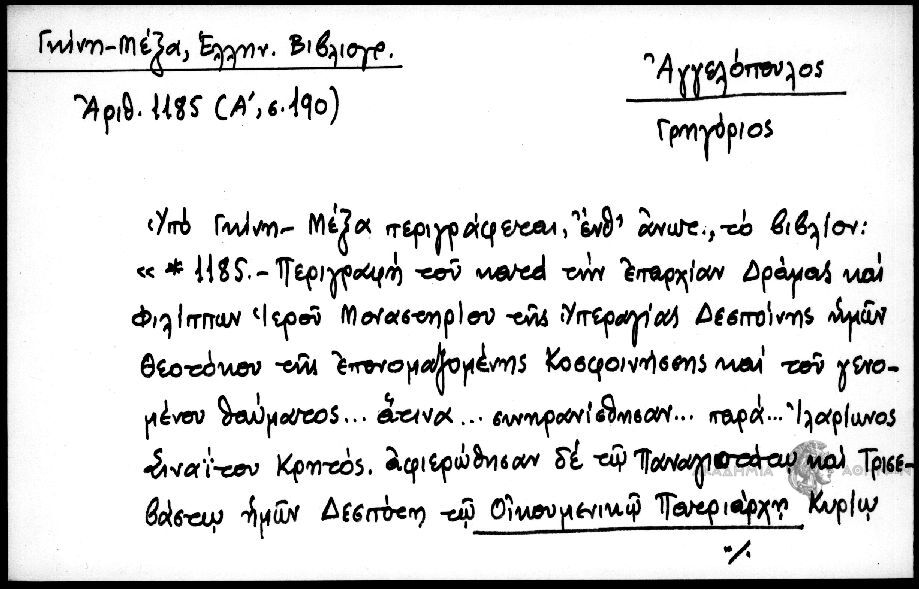 Γκίνη-Μέξα, Ἑλλην. Βιβλιογρ.
Ἀριθ. 1185 (Α΄, σ. 190)
Ἀγγελόπουλος
Γρηγόριος
Ὑπό Γκίνη-Μέξα περιγράφεται, ἔνθ' ἀνωτ., τό βιβλίον:
«* 1185.- Περιγραφή τοῦ κατά τήν ἐπαρχίαν Δράμας καί
Φιλίππων Ἱεροῦ Μοναστηρίου τῆς Ὑπεραγίας Δεσποίνης ἡμῶν
Θεοτόκου τῆς ἐπονομαζομένης Κοσφοινήσσης καί τοῦ γενο-
μένου θαύματος... ἅτινα... συνηρανίσθησαν... παρά... Ἱλαρίωνος
Σιναΐτου Κρητός. ἀφιερώθησαν δέ τῷ Παναγιωτάτῳ καί Τρισε-
βάστῳ ἡμῶν Δεσπότῃ τῷ Οἰκουμενικῷ Πατριάρχῃ Κυρίῳ
·/.